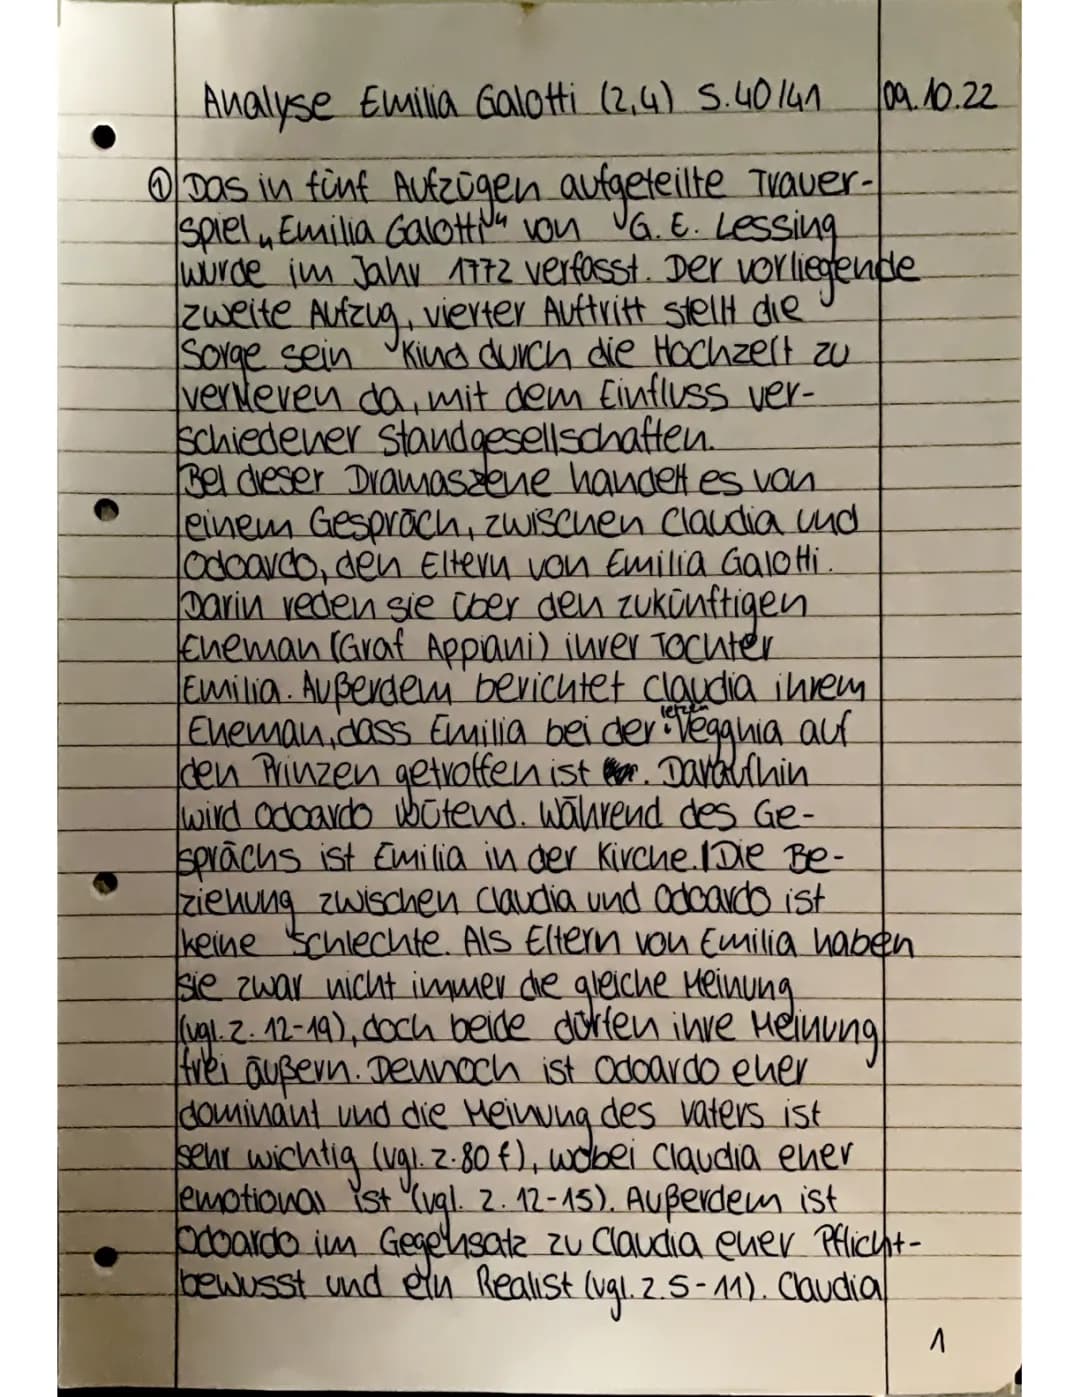 Analyse Emilia Galotti (2,4) S.40/41 09.10.22
① Das in fünf Aufzügen aufgeteilte Trauer-
spiel „Emilia Galotti“ von G. E. Lessing
wurde im Jahr 1772 verfasst. Der vorliegende
zweite Aufzug, vierter Auftritt stellt die
Sorge sein Kind durch die Hochzeit zu
verlieren da, mit dem Einfluss ver-
schiedener Standgesellschaften.
Bei dieser Dramaszene handelt es von
einem Gespräch, zwischen Claudia und
Odoardo, den Eltern von Emilia Galotti.
Darin reden sie über den zukünftigen
Eheman (Graf Appiani) ihrer Tochter
Emilia. Außerdem berichtet Claudia ihrem
Eheman, dass Emilia bei der letzen Vegghia auf
den Prinzen getroffen ist. Daraufhin
wird Odoardo wütend. Während des Ge-
sprächs ist Emilia in der Kirche. | Die Be-
ziehung zwischen Claudia und Odoardo ist
keine Schlechte. Als Eltern von Emilia haben
sie zwar nicht immer die gleiche Meinung
(vgl. Z. 12-19), doch beide dürfen ihre Meinung
frei äußern. Dennoch ist Odoardo eher
dominant und die Meinung des Vaters ist
sehr wichtig (vgl. Z. 80 f), wobei Claudia eher
emotional ist (vgl. Z. 12-15). Außerdem ist
Odoardo im Gegensatz zu Claudia eher Pflicht-
bewusst und ein Realist (vgl. Z. 5-11). Claudia
1